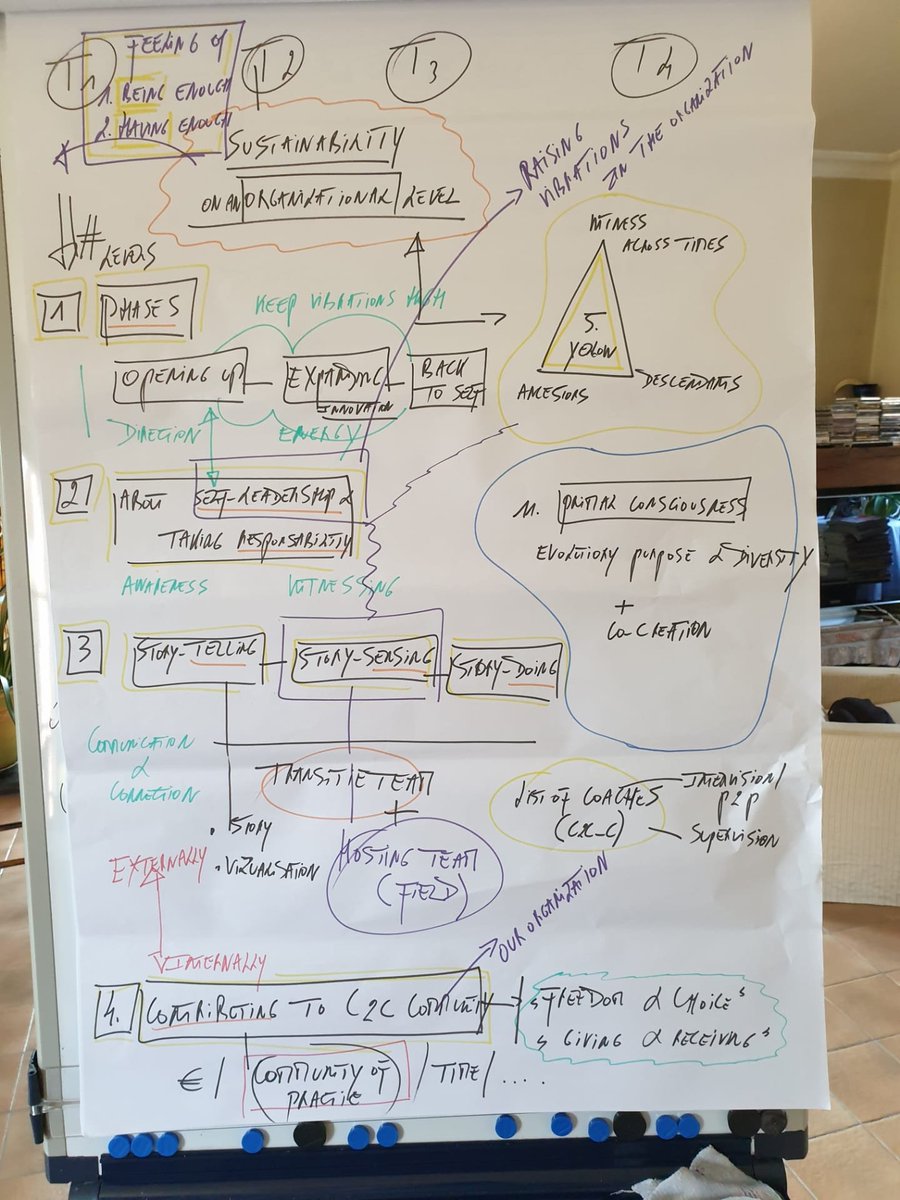 T1
FEELING OF
1. BEING ENOUGH
2. HAVING ENOUGH
T2
T3
T4
SUSTAINABILITY
ON AN ORGANIZATIONAL LEVEL
RAISING
VIBRATIONS
IN THE ORGANIZATION
# LEVELS
1 PHASES
KEEP VIBRATIONS HIGH
OPENING UP
EXPANDING
INNOVATION
BACK
TO SELF
DIRECTION
ENERGY
WITNESS
ACROSS TIMES
5.
YELLOW
DESCENDANTS
2 ABOUT SELF-LEADERSHIP &
TAKING RESPONSABILITY
AWARENESS
WITNESSING
11. PRIMAL CONSCIOUSNESS
EVOLUTIONY PURPOSE & DIVERSITY
+
CO-CREATION
3 STORY-TELLING
STORY-SENSING
STORY-DOING
COMMUNICATION
&
CONNECTION
• STORY
• VIZUALISATION
TRANSITIE TEAM
+
HOSTING TEAM
(FIELD)
LIST OF COACHES
(C2C-C)
INTERVISION/
P2P
SUPERVISION
EXTERNALLY
INTERNALLY
OUR ORGANIZATION
4. CONTRIBUTING TO C2C COMMUNITY
FREEDOM & CHOICE
GIVING & RECEIVING
€ / (COMMUNITY OF
PRACTICE) / TIME / ....